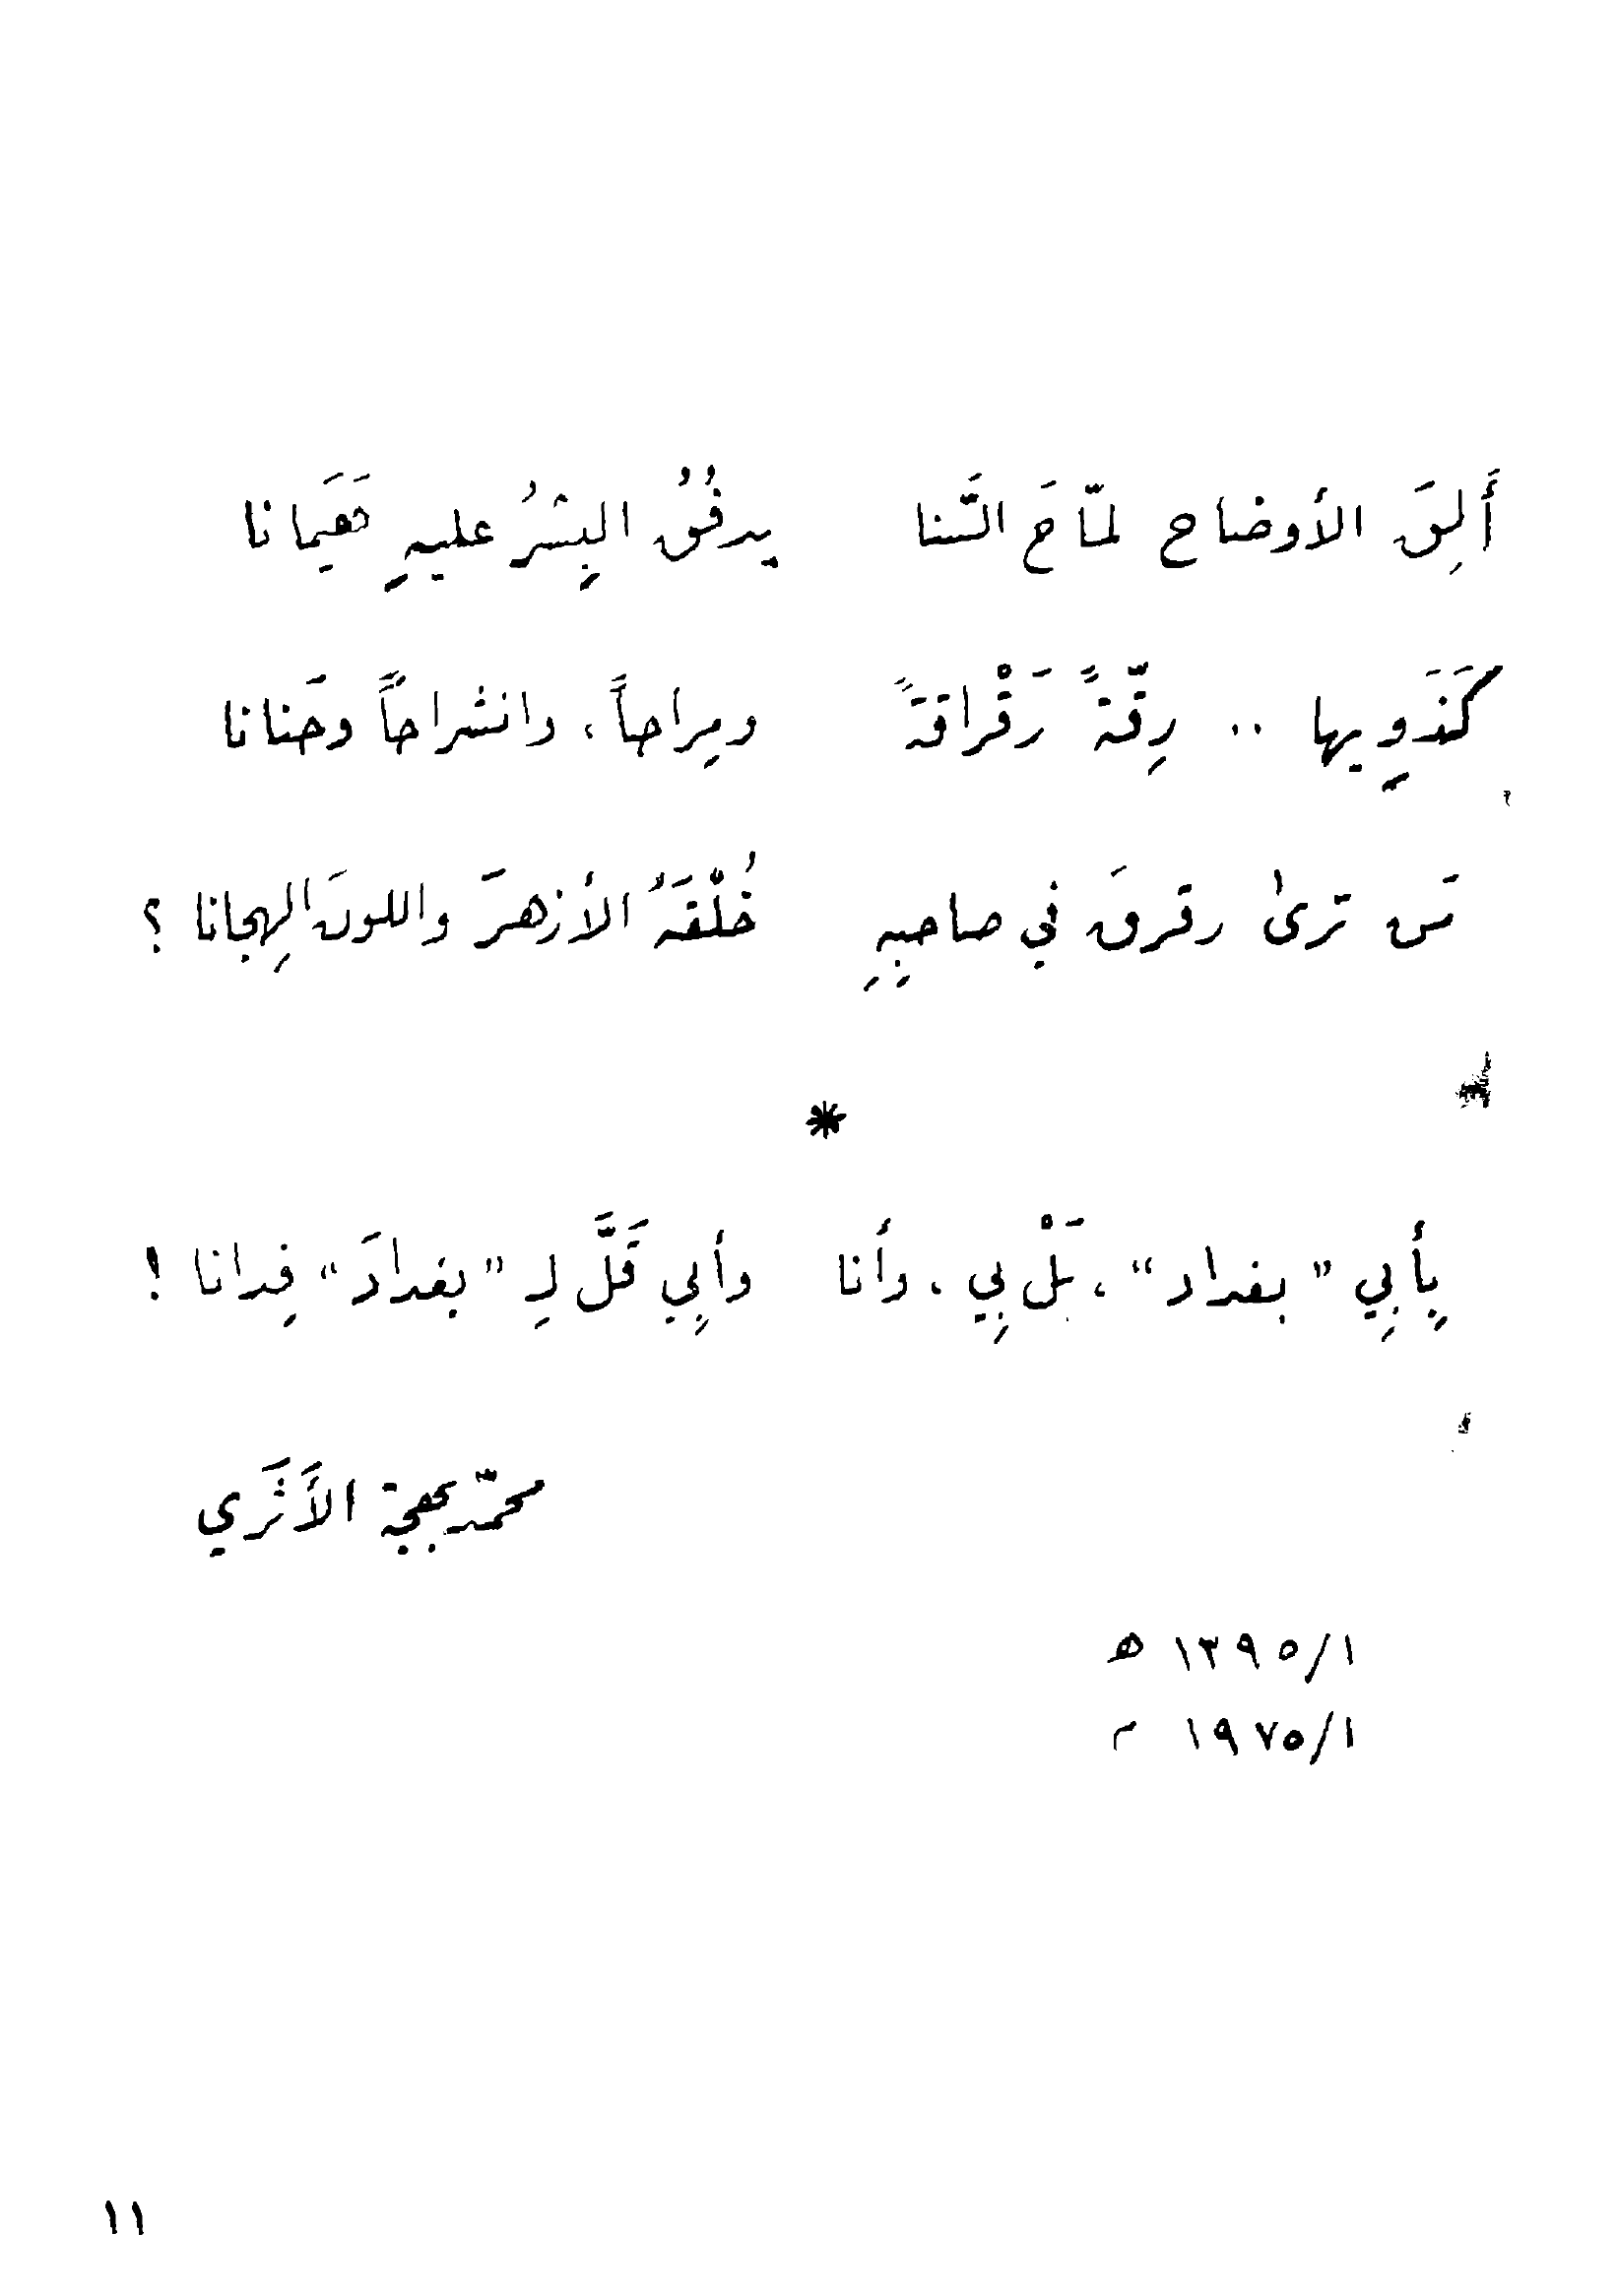 أَلِقَ الأوضاح لمّاحَ السَّنا يدفُقُ البِشرُ عليهِ هَيَمانا
كَذَوِيها .. رِقّةً رَقْراقةً ومِراحاً، وانشراحاً وحَنانا
مَن ترىٰ رقرقَ في صاحبِهِ خُلْقَهُ الأزهرَ واللونَ الهِجانا ؟
*
بِأبِي "بغداد"، بَلْ بِي ، وأَنا وأبِي قَلَّ لِـ "بغدادَ" فِدانا !
محمّد بهجة الأَثَري
١٣٩٥/١ هـ
١٩٧٥/١ م
١١